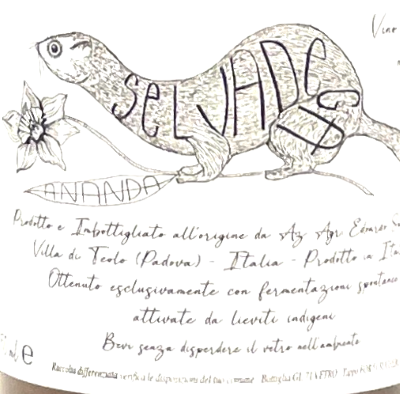 Vino
SELVADEGO
ANANDA
Prodotto e Imbottigliato all'origine da Az Agr Edoardo
Villa di Teolo (Padova) - Italia - Prodotto in
Ottenuto esclusivamente con fermentazioni spontanee
attivate da lieviti indigeni
Bevi senza disperdere il vetro nell'ambiente
ml e
Raccolta differenziata verifica le disposizioni del tuo comune Bottiglia GL 71 VETRO